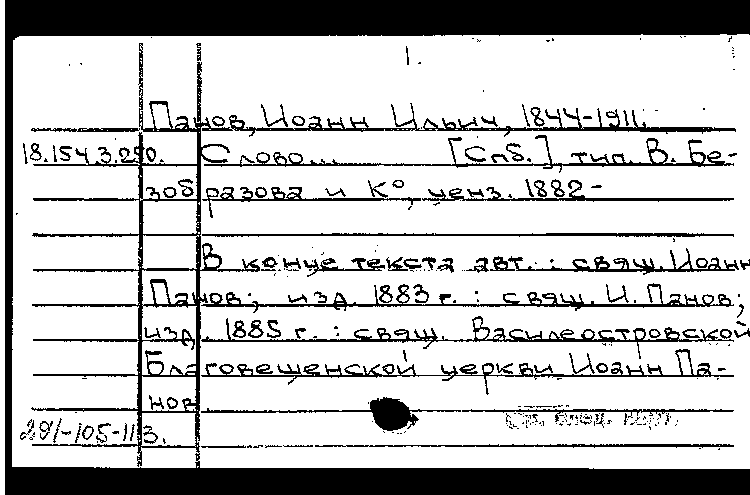 1.
Панов, Иоанн Ильич, 1844-1911.
18.154.3.250. Слово... [Спб.], тип. В. Бе-
зобразова и К°, ценз. 1882-
В конце текста авт.: свящ. Иоанн
Панов; изд. 1883 г.: свящ. И. Панов;
изд. 1885 г.: свящ. Василеостровской
Благовещенской церкви Иоанн Па-
нов.
См. след. карт.
291-105-113.